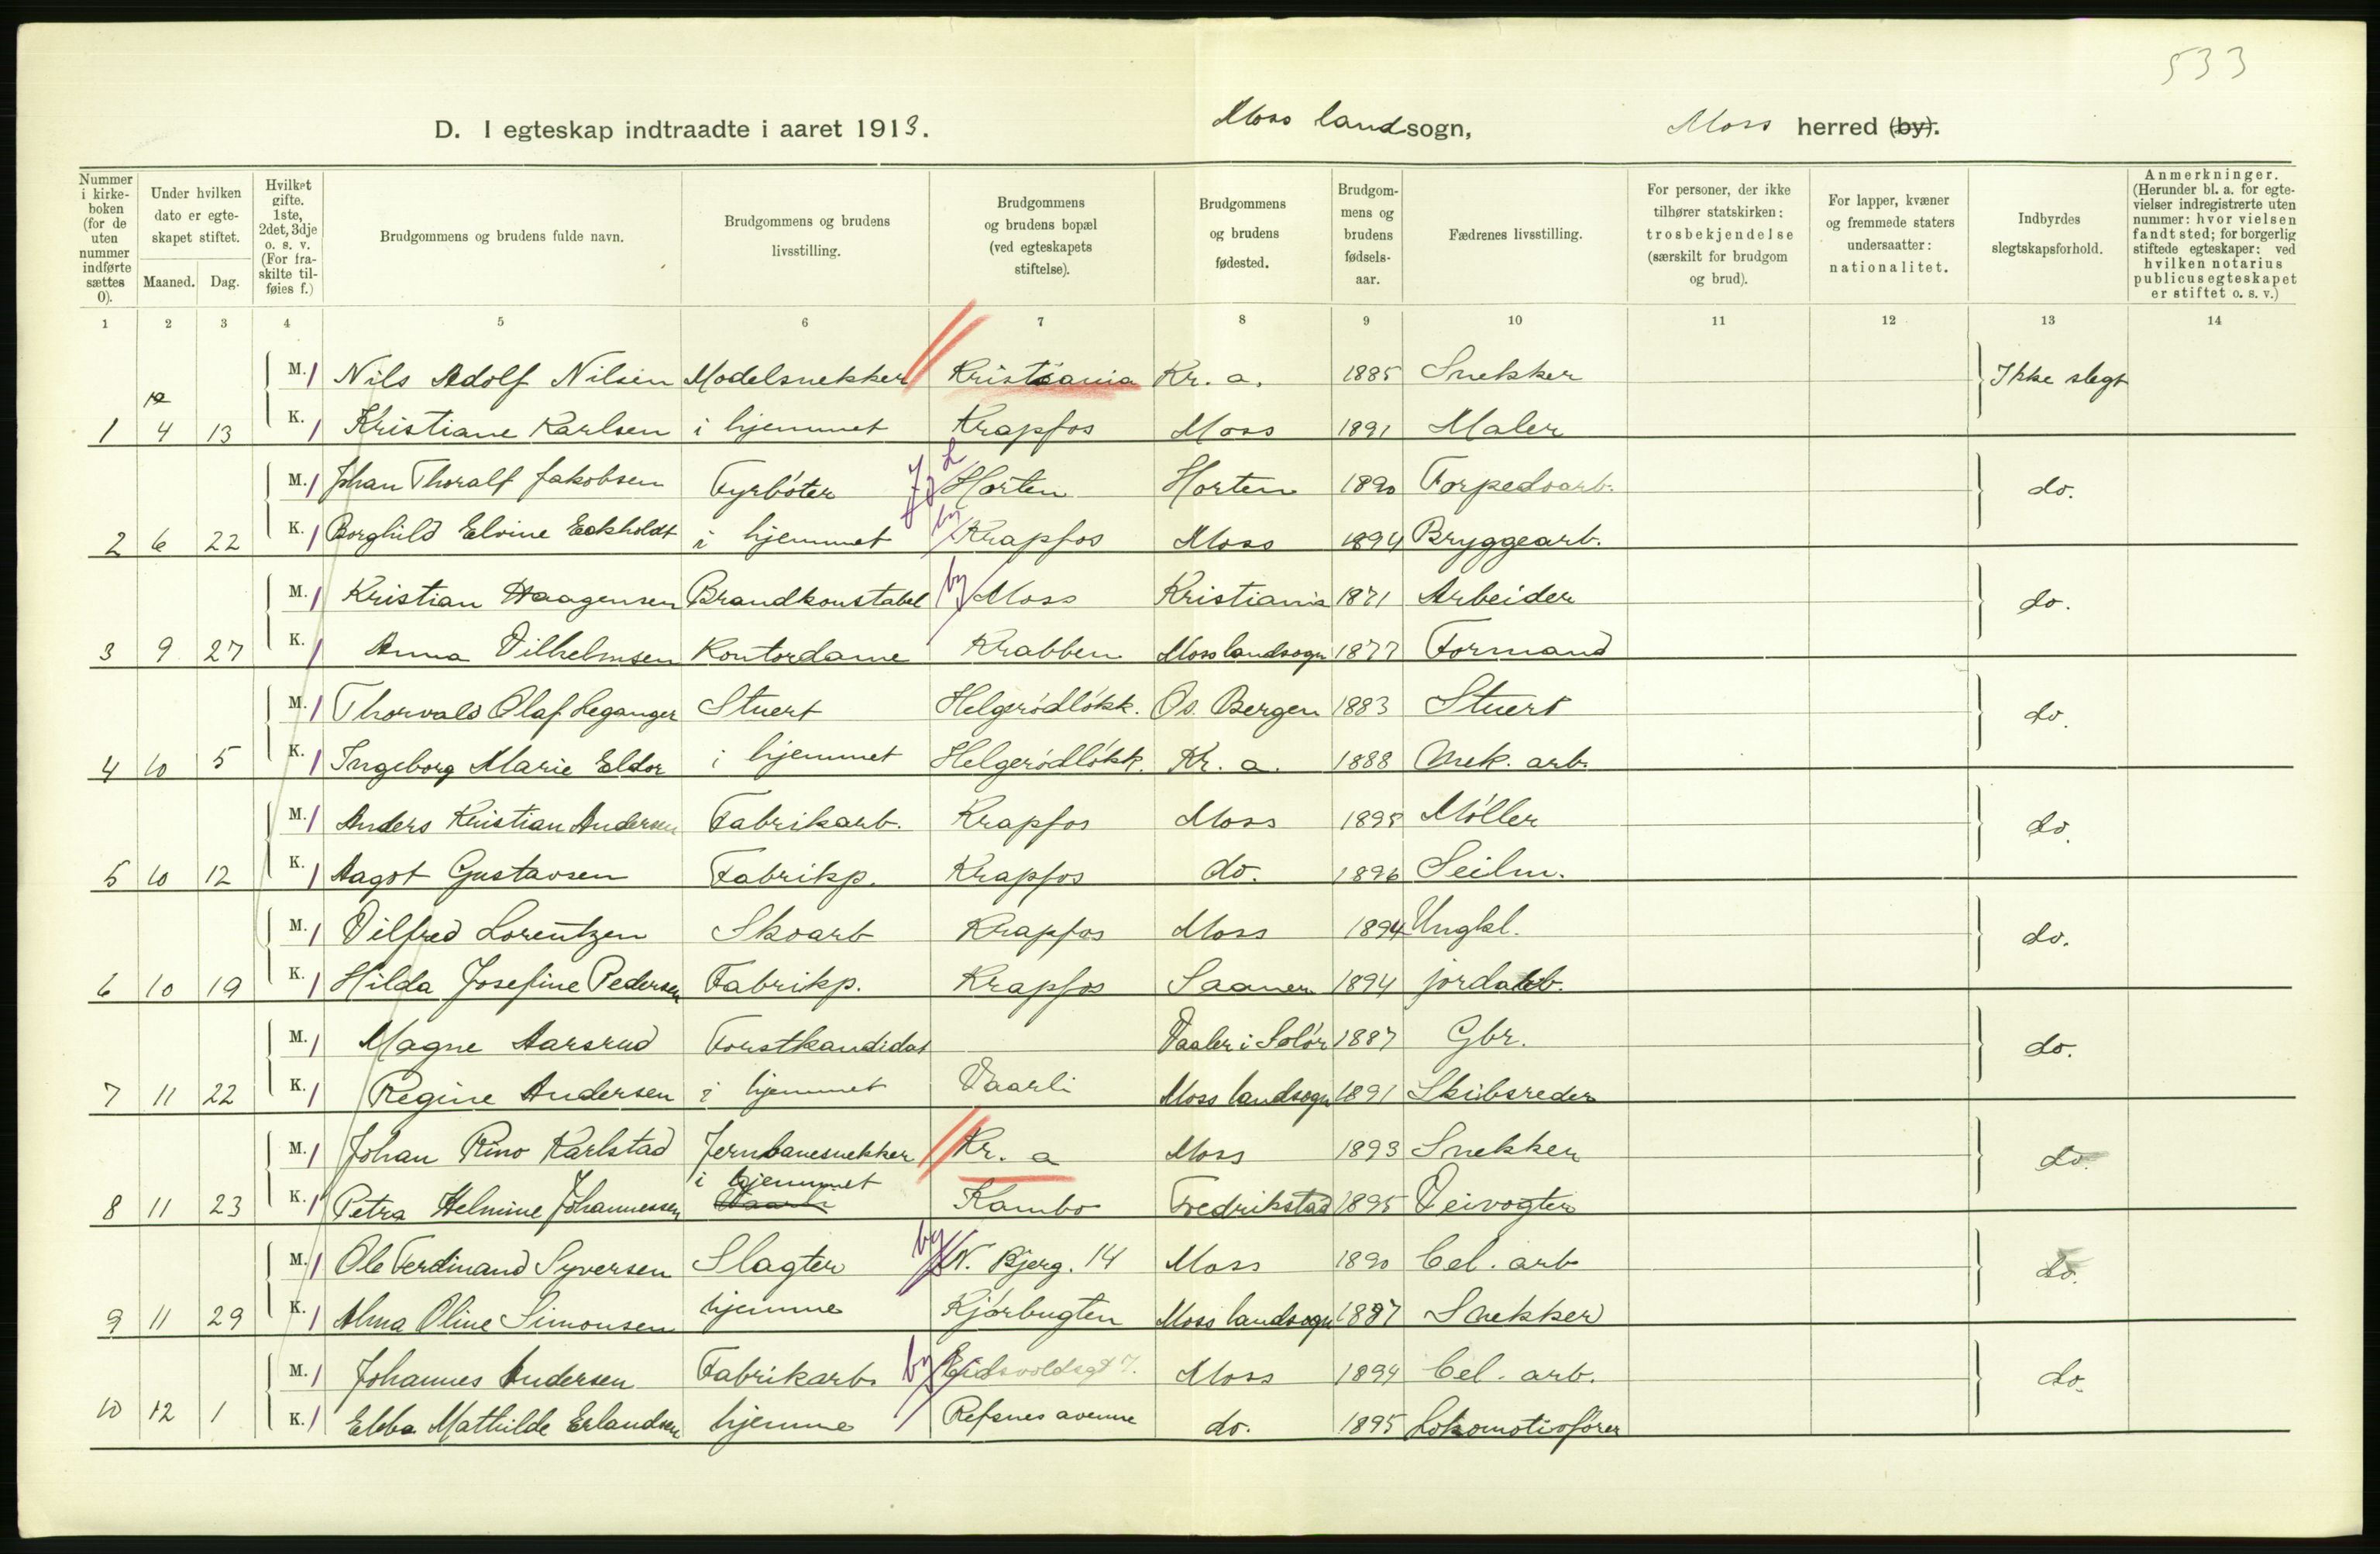 533
D. I egteskap indtraadte i aaret 1913. Moss landsogn, Moss herred (by).
Nummer i kirke-boken (for de uten nummer indførte sættes 0). Under hvilken dato er egte-skapet stiftet. Maaned. Dag. Hvilket gifte. 1ste, 2det, 3dje o. s. v. (For fra-skilte til-føies f.) Brudgommens og brudens fulde navn. Brudgommens og brudens livsstilling. Brudgommens og brudens bopæl (ved egteskapets stiftelse). Brudgommens og brudens fødested. Brudgom-mens og brudens fødsels-aar. Fædrenes livsstilling. For personer, der ikke tilhører statskirken: trosbekjendelse (særskilt for brudgom og brud). For lapper, kvæner og fremmede staters undersaatter: nationalitet. Indbyrdes slegtskapsforhold. Anmerkninger. (Herunder bl. a. for egte-vielser indregistrerte uten nummer: hvor vielsen fandt sted; for borgerlig stiftede egteskaper: ved hvilken notarius publicus egteskapet er stiftet o. s. v.)
1 2 3 4 5 6 7 8 9 10 11 12 13 14
M. 1 Nils Adolf Nilsen Modelsnekker Kristiania Kr. a. 1885 Snekker Ikke slegt
1 4 13 K. 1 Kristiane Karlsen i hjemmet Krapfos Moss 1891 Maler
M. 1 Johan Thoralf Jakobsen Fyrbøter Horten Horten 1890 Torpedoarb. do.
2 6 22 K. 1 Borghild Elvine Eckholdt i hjemmet by Krapfos Moss 1894 Bryggearb.
M. 1 Kristian Haagensen Brandkonstabel by Moss Kristiania 1871 Arbeider do.
3 9 27 K. 1 Anna Vilhelmsen Kontordame Krabben Moss landsogn 1877 Formand
M. 1 Thorvald Olaf Leganger Stuert Helgerødløkk. Os. Bergen 1883 Stuert do.
4 10 5 K. 1 Ingeborg Marie Eldor i hjemmet Helgerødløkk. Kr. a. 1888 Mek. arb.
M. 1 Anders Kristian Andersen Fabrikarb. Krapfos Moss 1895 Møller do.
5 10 12 K. 1 Aagot Gustavsen Fabrikp. Krapfos do. 1896 Seilm.
M. 1 Vilfred Lorentzen Skoarb Krapfos Moss 1894 Ungkl. do.
6 10 19 K. 1 Hilda Josefine Pedersen Fabrikp. Krapfos Saaner 1894 jordarb.
M. 1 Magne Aarsrud Forstkandidat Vaaler i Solør 1887 Gbr. do.
7 11 22 K. 1 Regine Andersen i hjemmet Vaarli Moss landsogn 1891 Skibsreder
M. 1 Johan Rino Karlstad Jernbanesnekker Kr. a Moss 1893 Snekker do.
8 11 23 K. 1 Petra Helmine Johannessen i hjemmet Vaarli Kambo Fredrikstad 1895 Veivogter
M. 1 Ole Ferdinand Syversen Slagter by N. Bjerg. 14 Moss 1890 Cel. arb do.
9 11 29 K. 1 Alma Oline Simonsen hjemme Kjørbugten Moss landsogn 1887 Snekker
M. 1 Johannes Andersen Fabrikarb. by Eidsvoldsgt 7. Moss 1894 Cel. arb. do.
10 12 1 K. 1 Ebba Mathilde Erlandsen hjemme Refsnes avenue do. 1895 Lokomotivfører